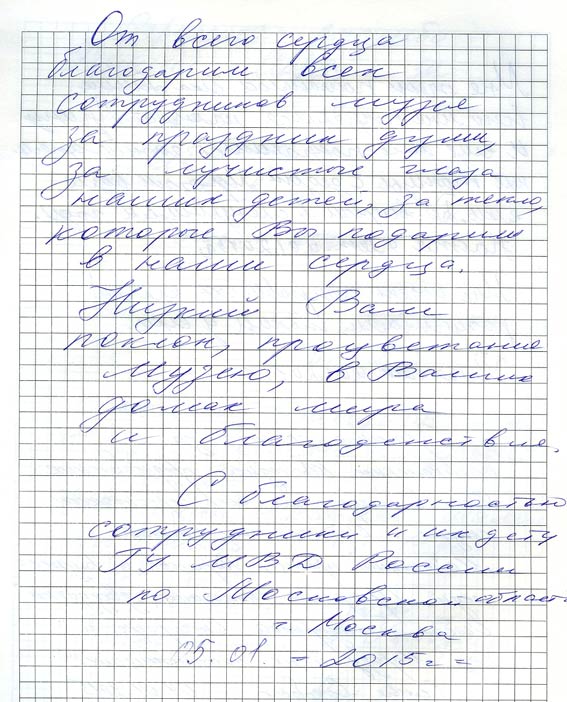 От всего сердца
благодарим всех
сотрудников музея
за праздник души,
за лучистые глаза
наших детей, за тепло,
которые Вы подарили
в наши сердца.
Низкий Вам
поклон, процветание
Музею, в Ваших
домах мира
и благоденствия.
С благодарностью
сотрудники и их дети
ГУ МВД России
по Московской области
г. Москва
05.01. = 2015г =